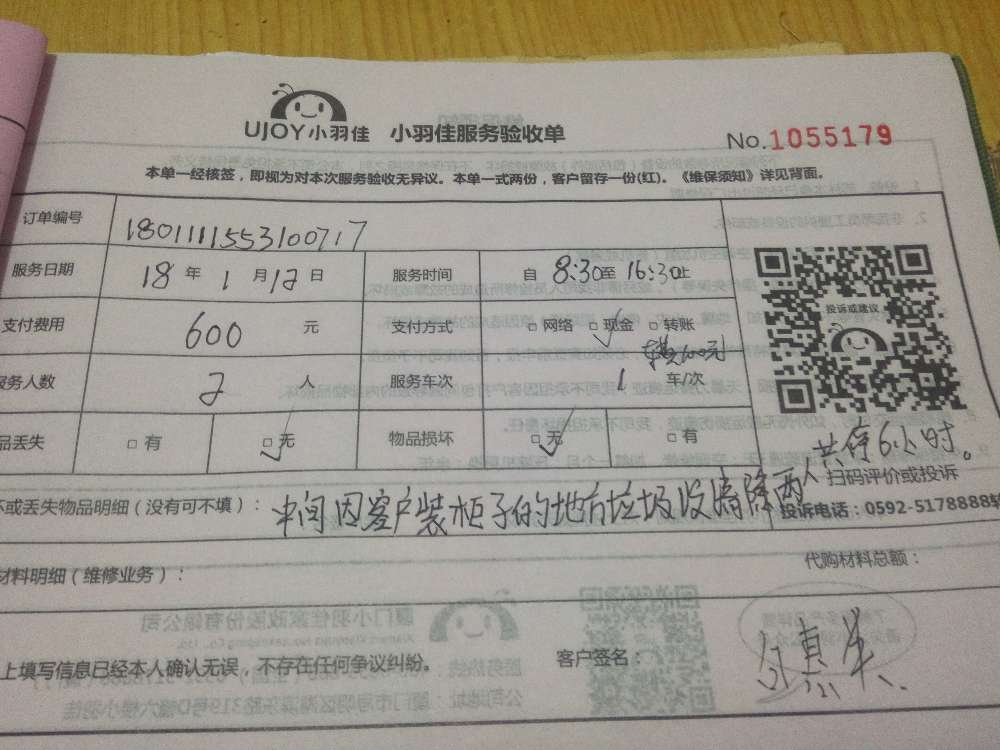 UJOY小羽佳 小羽佳服务验收单
No.1055179
本单一经核签，即视为对本次服务验收无异议。本单一式两份，客户留存一份(红)。《维保须知》详见背面。
订单编号 1801111553100717
服务日期 18 年 1 月 12 日 服务时间 自 8:30至 16:30止
支付费用 600 元 支付方式 □ 网络 □ 现金 □ 转账
服务人数 2 人 服务车次 1 车/次
品丢失 □ 有 □ 无 物品损坏 □ 无 □ 有
投诉或建议
共停6小时。
扫码评价或投诉
投诉电话：0592-5178888转
坏或丢失物品明细（没有可不填）： 中间因客户装柜子的地方垃圾没清除两人
材料明细（维修业务）： 代购材料总额：
上填写信息已经本人确认无误，不存在任何争议纠纷。 客户签名：